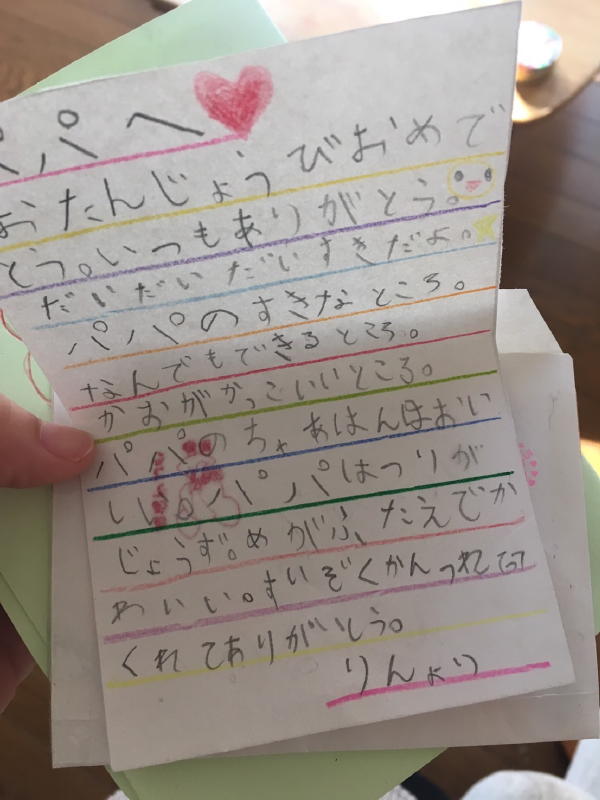 パパへ
おたんじょうびおめで
とう。いつもありがとう。
だいだいだいすきだよ。
パパのすきなところ。
なんでもできるところ。
かおがかっこいいところ。
パパのちゃあはんほおい
しい。パパはつりが
じょうず。めがふたえでか
わいい。すいぞくかんつれてって
くれてありがとう。
りんより